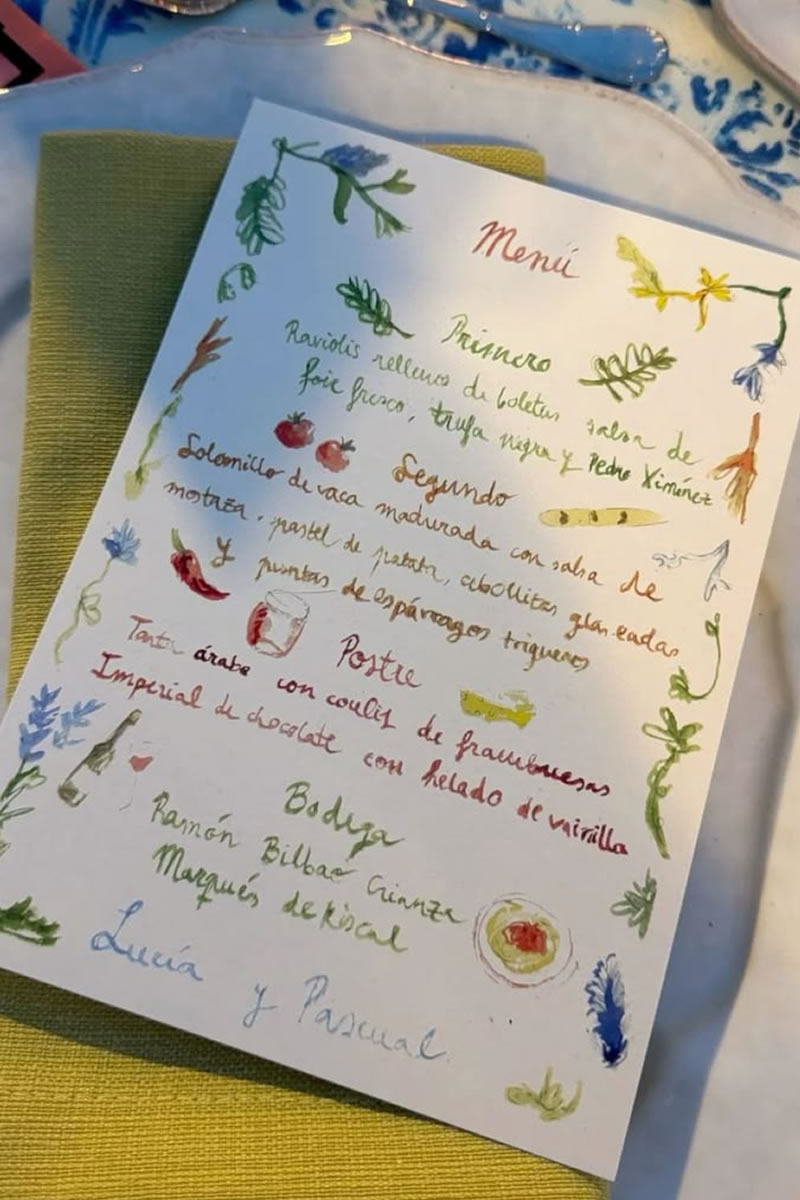 Menú
Primero
Raviolis rellenos de boletus salsa de
foie fresco, trufa negra y Pedro Ximénez
Segundo
Solomillo de vaca madurada con salsa de
mostaza, pastel de patata, cebollitas glaseadas
y puntas de espárragos trigueros
Postre
Tarta árabe con coulis de frambuesas
Imperial de chocolate con helado de vainilla
Bodega
Ramón Bilbao Crianza
Marqués de Riscal
Lucía y Pascual